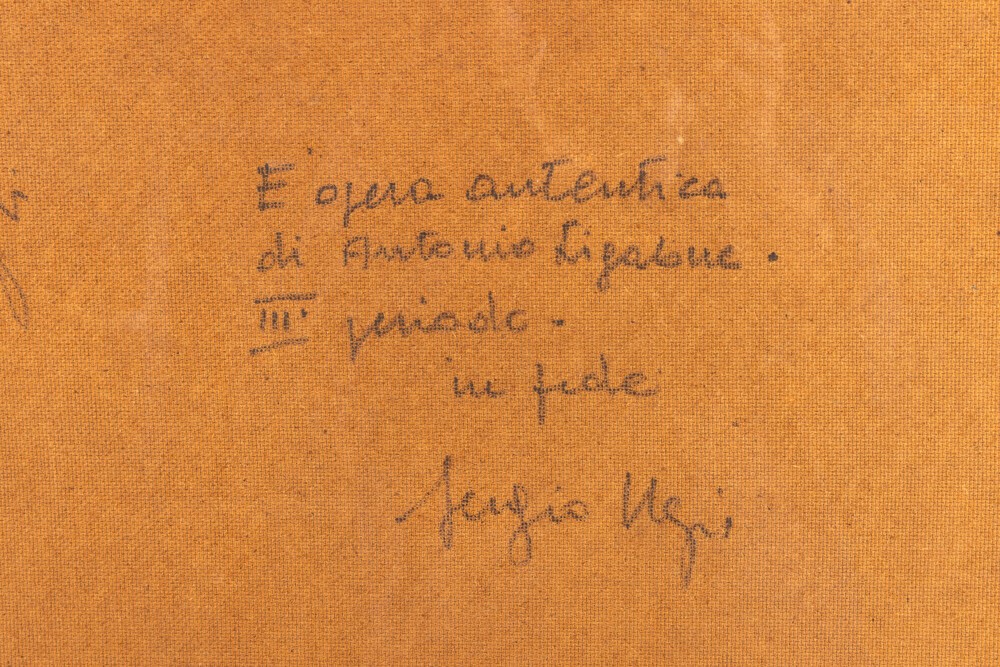 E' opera autentica
di Antonio Ligabue.
III° periodo.
in fede
Sergio Negri